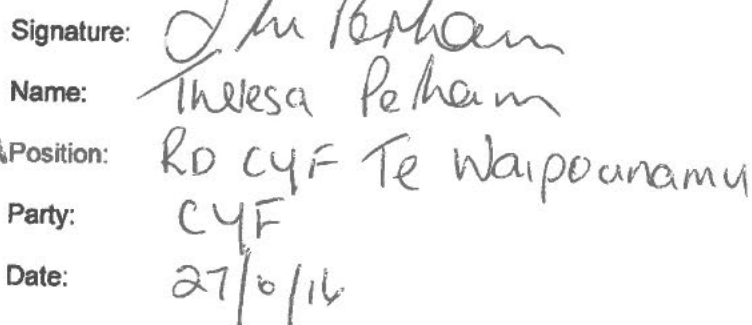 Signature:
Name: Theresa Perham
Position: RD CYF Te Waipounamu
Party: CYF
Date: 27/6/16